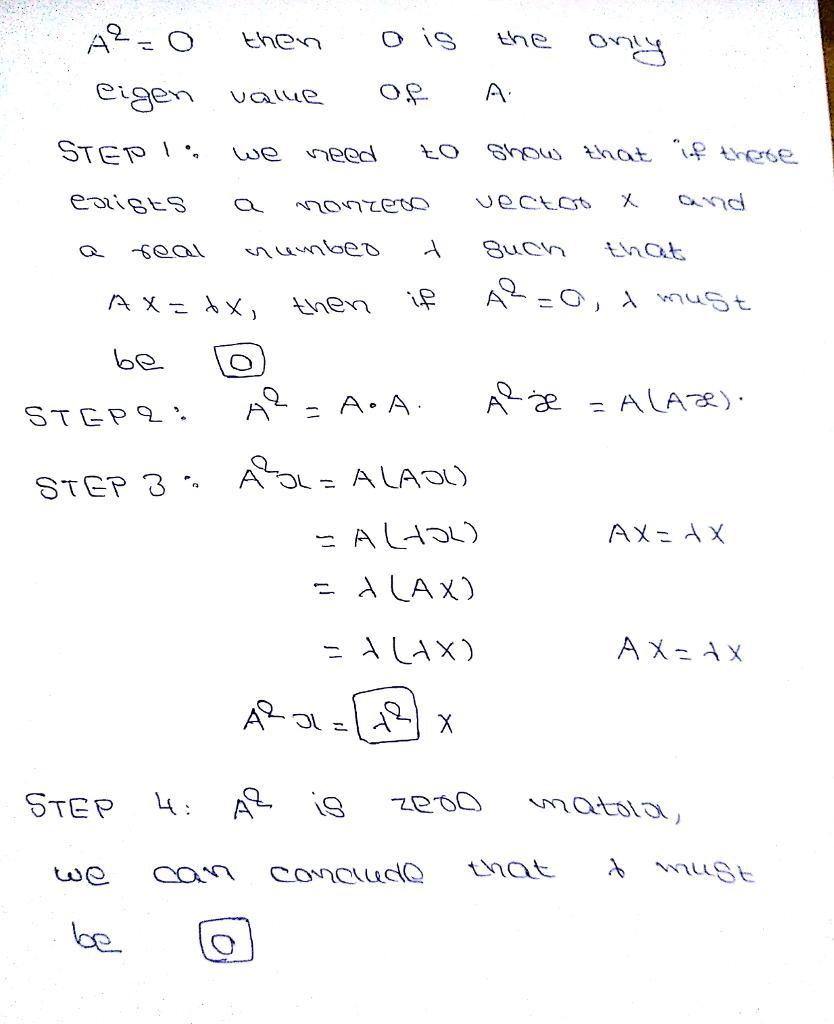 A² = 0 then 0 is the only
eigen value of A.
STEP 1: we need to show that if there
exists a nonzero vector x and
a real number λ such that
AX = λX, then if A² = 0, λ must
be 0
STEP 2: A² = A·A. A²x = A(Ax).
STEP 3: A²x = A(Ax)
= A(λx) AX = λX
= λ(AX)
= λ(λX) AX = λX
A²x = λ² x
STEP 4: A² is zero matrix,
we can conclude that λ must
be 0